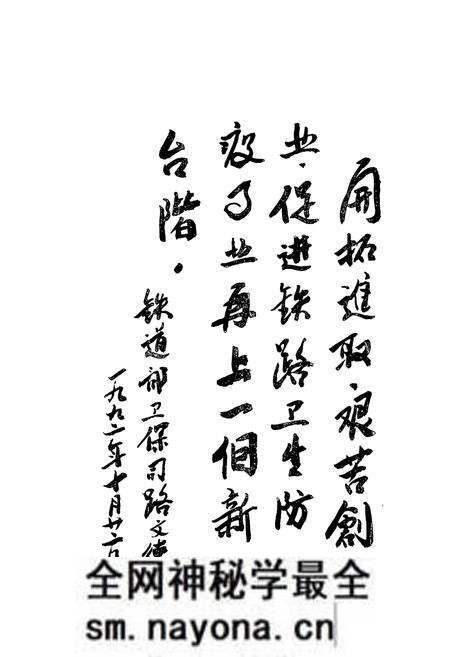 開拓進取、艰苦創
业、促進铁路卫生防
疫事业再上一個新
台階。
铁道部卫保司路文
一九九二年十月廿二日
全网神秘学最全
sm.nayona.cn